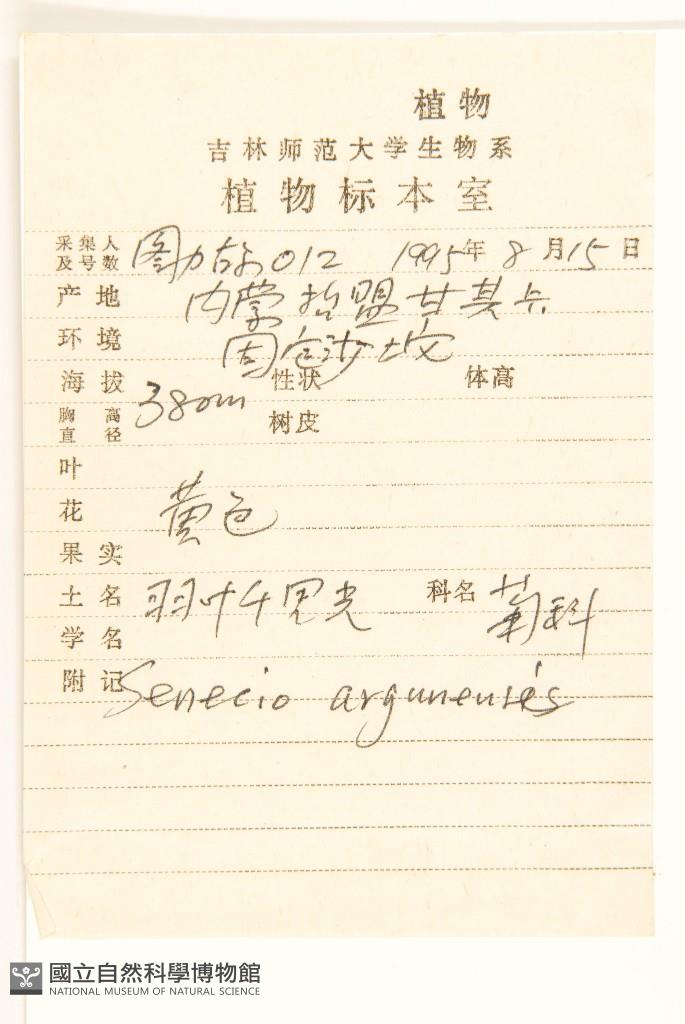 植物
吉林师范大学生物系
植物标本室
采集人及号数 图力古尔012 1995年 8月15日
产地 内蒙哲盟甘其卡
环境 固定沙坨
海拔 380m 性状 体高
胸高直径 树皮
叶
花 黄色
果实
土名 羽叶千里光 科名 菊科
学名
附记 Senecio argunensis
國立自然科學博物館
NATIONAL MUSEUM OF NATURAL SCIENCE